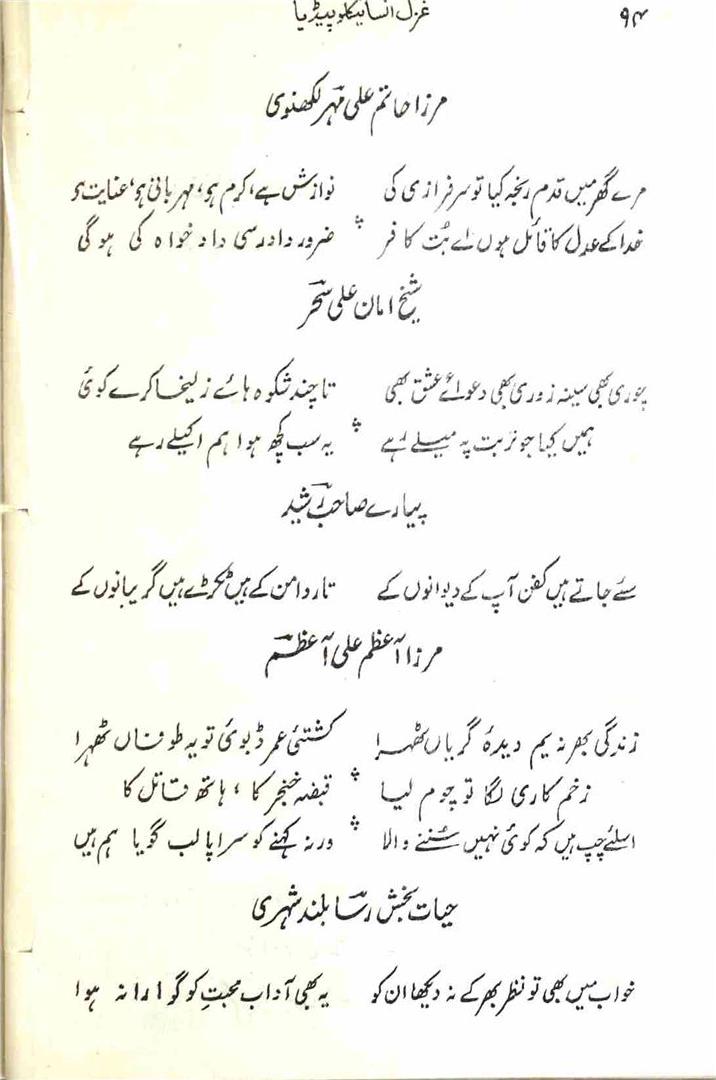 ۹۴ غزل انسائیکلوپیڈیا
مرزا حاتم علی مہر لکھنوی
مرے گھر میں قدم رنجہ کیا تو سرفرازی کی نوازش ہے، کرم ہو، مہربانی ہو، عنایت ہو
خدا کے عدل کا قائل ہوں اے بُت کافر ضرور دادرسی داد خواہ کی ہوگی
شیخ امان علی سحر
چوری بھی سینہ زوری بھی دعوائے عشق بھی تا چند شکوہ ہائے زلیخا کرے کوئی
ہمیں کیا جو تربت پہ میلے رہے یہ سب کچھ ہوا ہم اکیلے رہے
پیارے صاحب رشید
سئے جاتے ہیں کفن آپ کے دیوانوں کے تار دامن کے ہیں ٹکڑے ہیں گریبانوں کے
مرزا اعظم علی اعظم
زندگی بھر نہ یم دیدۂ گریاں ٹھہرا کشتئ عمر ڈبوئی تو یہ طوفاں ٹھہرا
زخم کاری لگا تو چوم لیا قبضہ خنجر کا، ہاتھ قاتل کا
اسلئے چپ ہیں کہ کوئی نہیں سُننے والا ورنہ کہنے کو سراپا لب گویا ہم ہیں
حیات بخش رسا بلند شہری
خواب میں بھی تو نظر بھر کے نہ دیکھا ان کو یہ بھی آداب محبت کو گوارا نہ ہوا